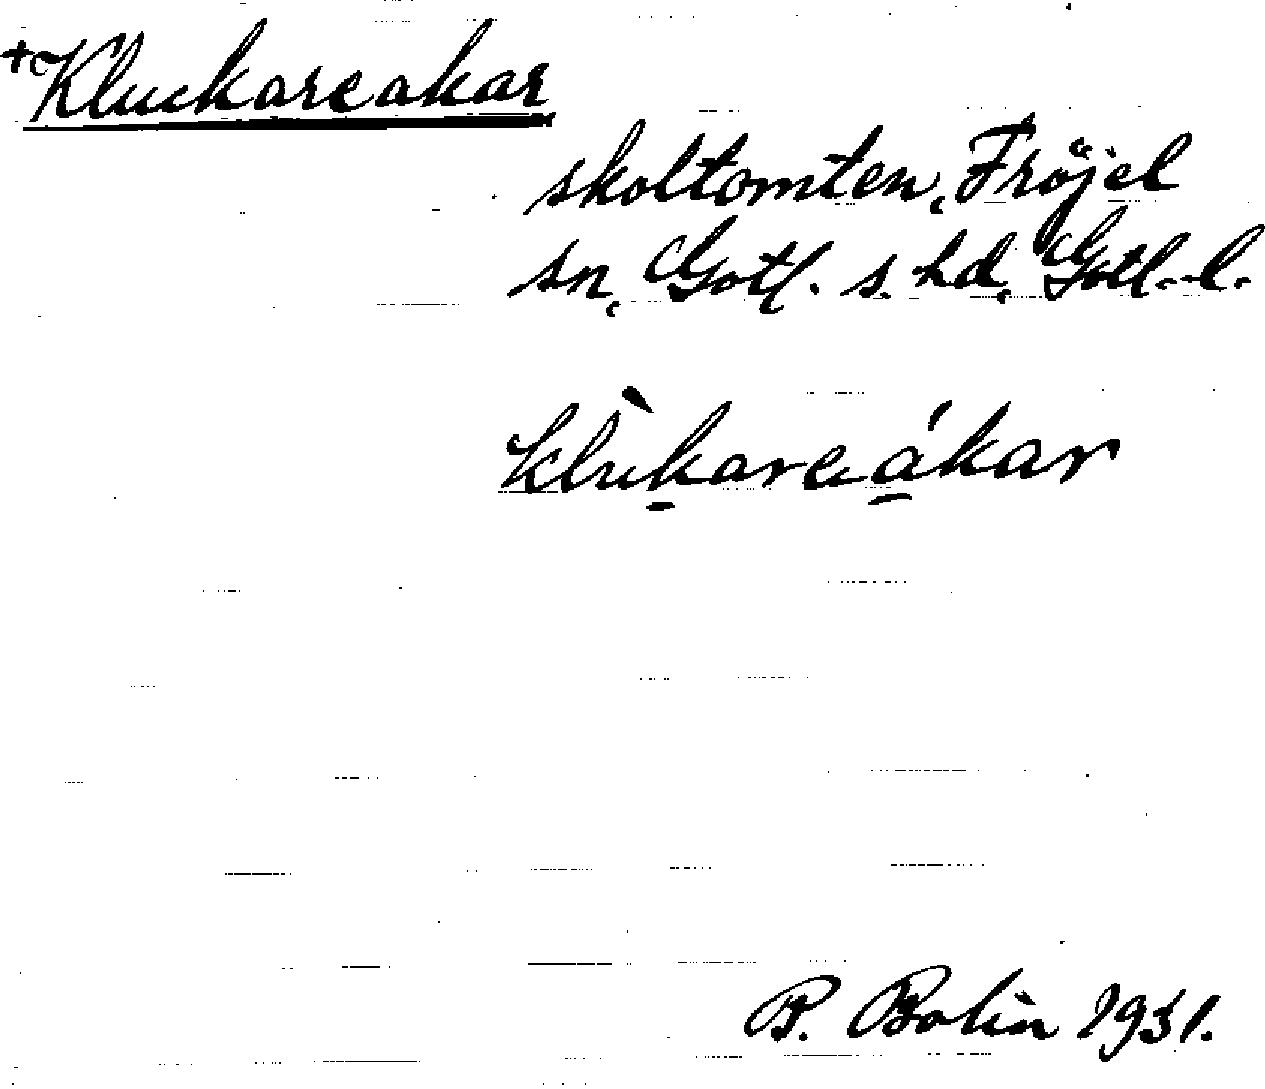 +Kluckareakar
skoltomten, Fröjel
sn, Gotl. s. hd, Gotl. l.
klùkarɐákar
B. Bolin 1931.